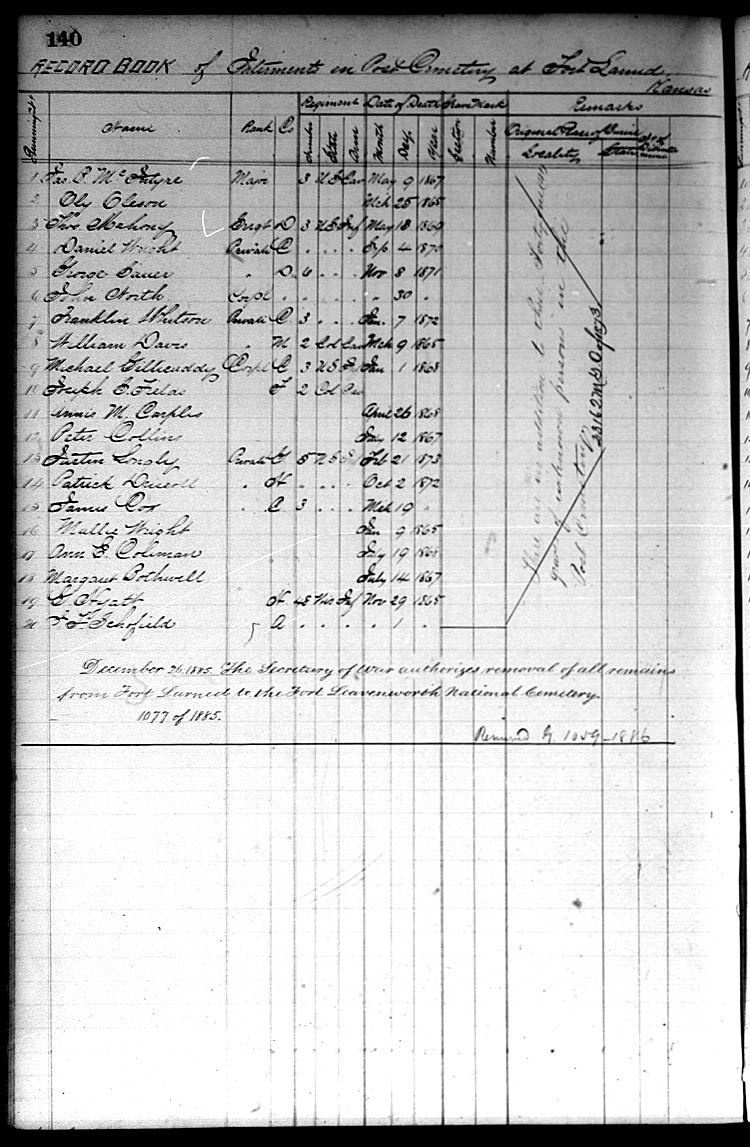 140
RECORD BOOK of Interments in Post Cemetery at Fort Larned
Kansas
Regiment Date of Death Grave Mark Remarks
Name Rank Co Number State Arm Month Day Year Section Number Original Place of Burial
Locality State
1 Jas. P. McIntyre Major 3 U S Cav May 9 1867
2 Oly Oleson Mch 25 1865
3 Thos Mahony Sergt D 3 U S Inf May 18 1869
4 Daniel Wright Private C . . . Sep 4 1870
5 George Sauer " D 6 . . Nov 8 1871
6 John North Corpl . . . . " 30 "
7 Franklin Whitson Private C 3 . . Jan 7 1872
8 William Davis " M 2 Col Cav Mch 9 1865
9 Michael Gillicuddy Corpl C 3 U S Inf Jan 1 1868
10 Joseph F 2 Col Cav
11 Annie M. Carples April 26 1868
12 Peter Collins July 12 1867
13 Justin Longly Private G 5 U S Inf Feb 21 1873
14 Patrick Driscoll " H . . . Oct 2 1872
15 James Cox " C 3 . . Mch 19 "
16 Mallie Wright Jan 9 1865
17 Ann E. Coleman July 19 1868
18 Margaret Bothwell July 14 1867
19 C. Hyatt H 48 Wis Inf Nov 29 1865
20 F. F. Schofield A . . . . 1 .
There are in addition to these forty
graves of unknown persons in the
Post Cemetery
3162 M.S.O.
December 26, 1885. The Secretary of War authorizes removal of all remains
from Fort Larned to the Fort Leavenworth National Cemetery.
1077 of 1885.
Removed G. 1059-1886